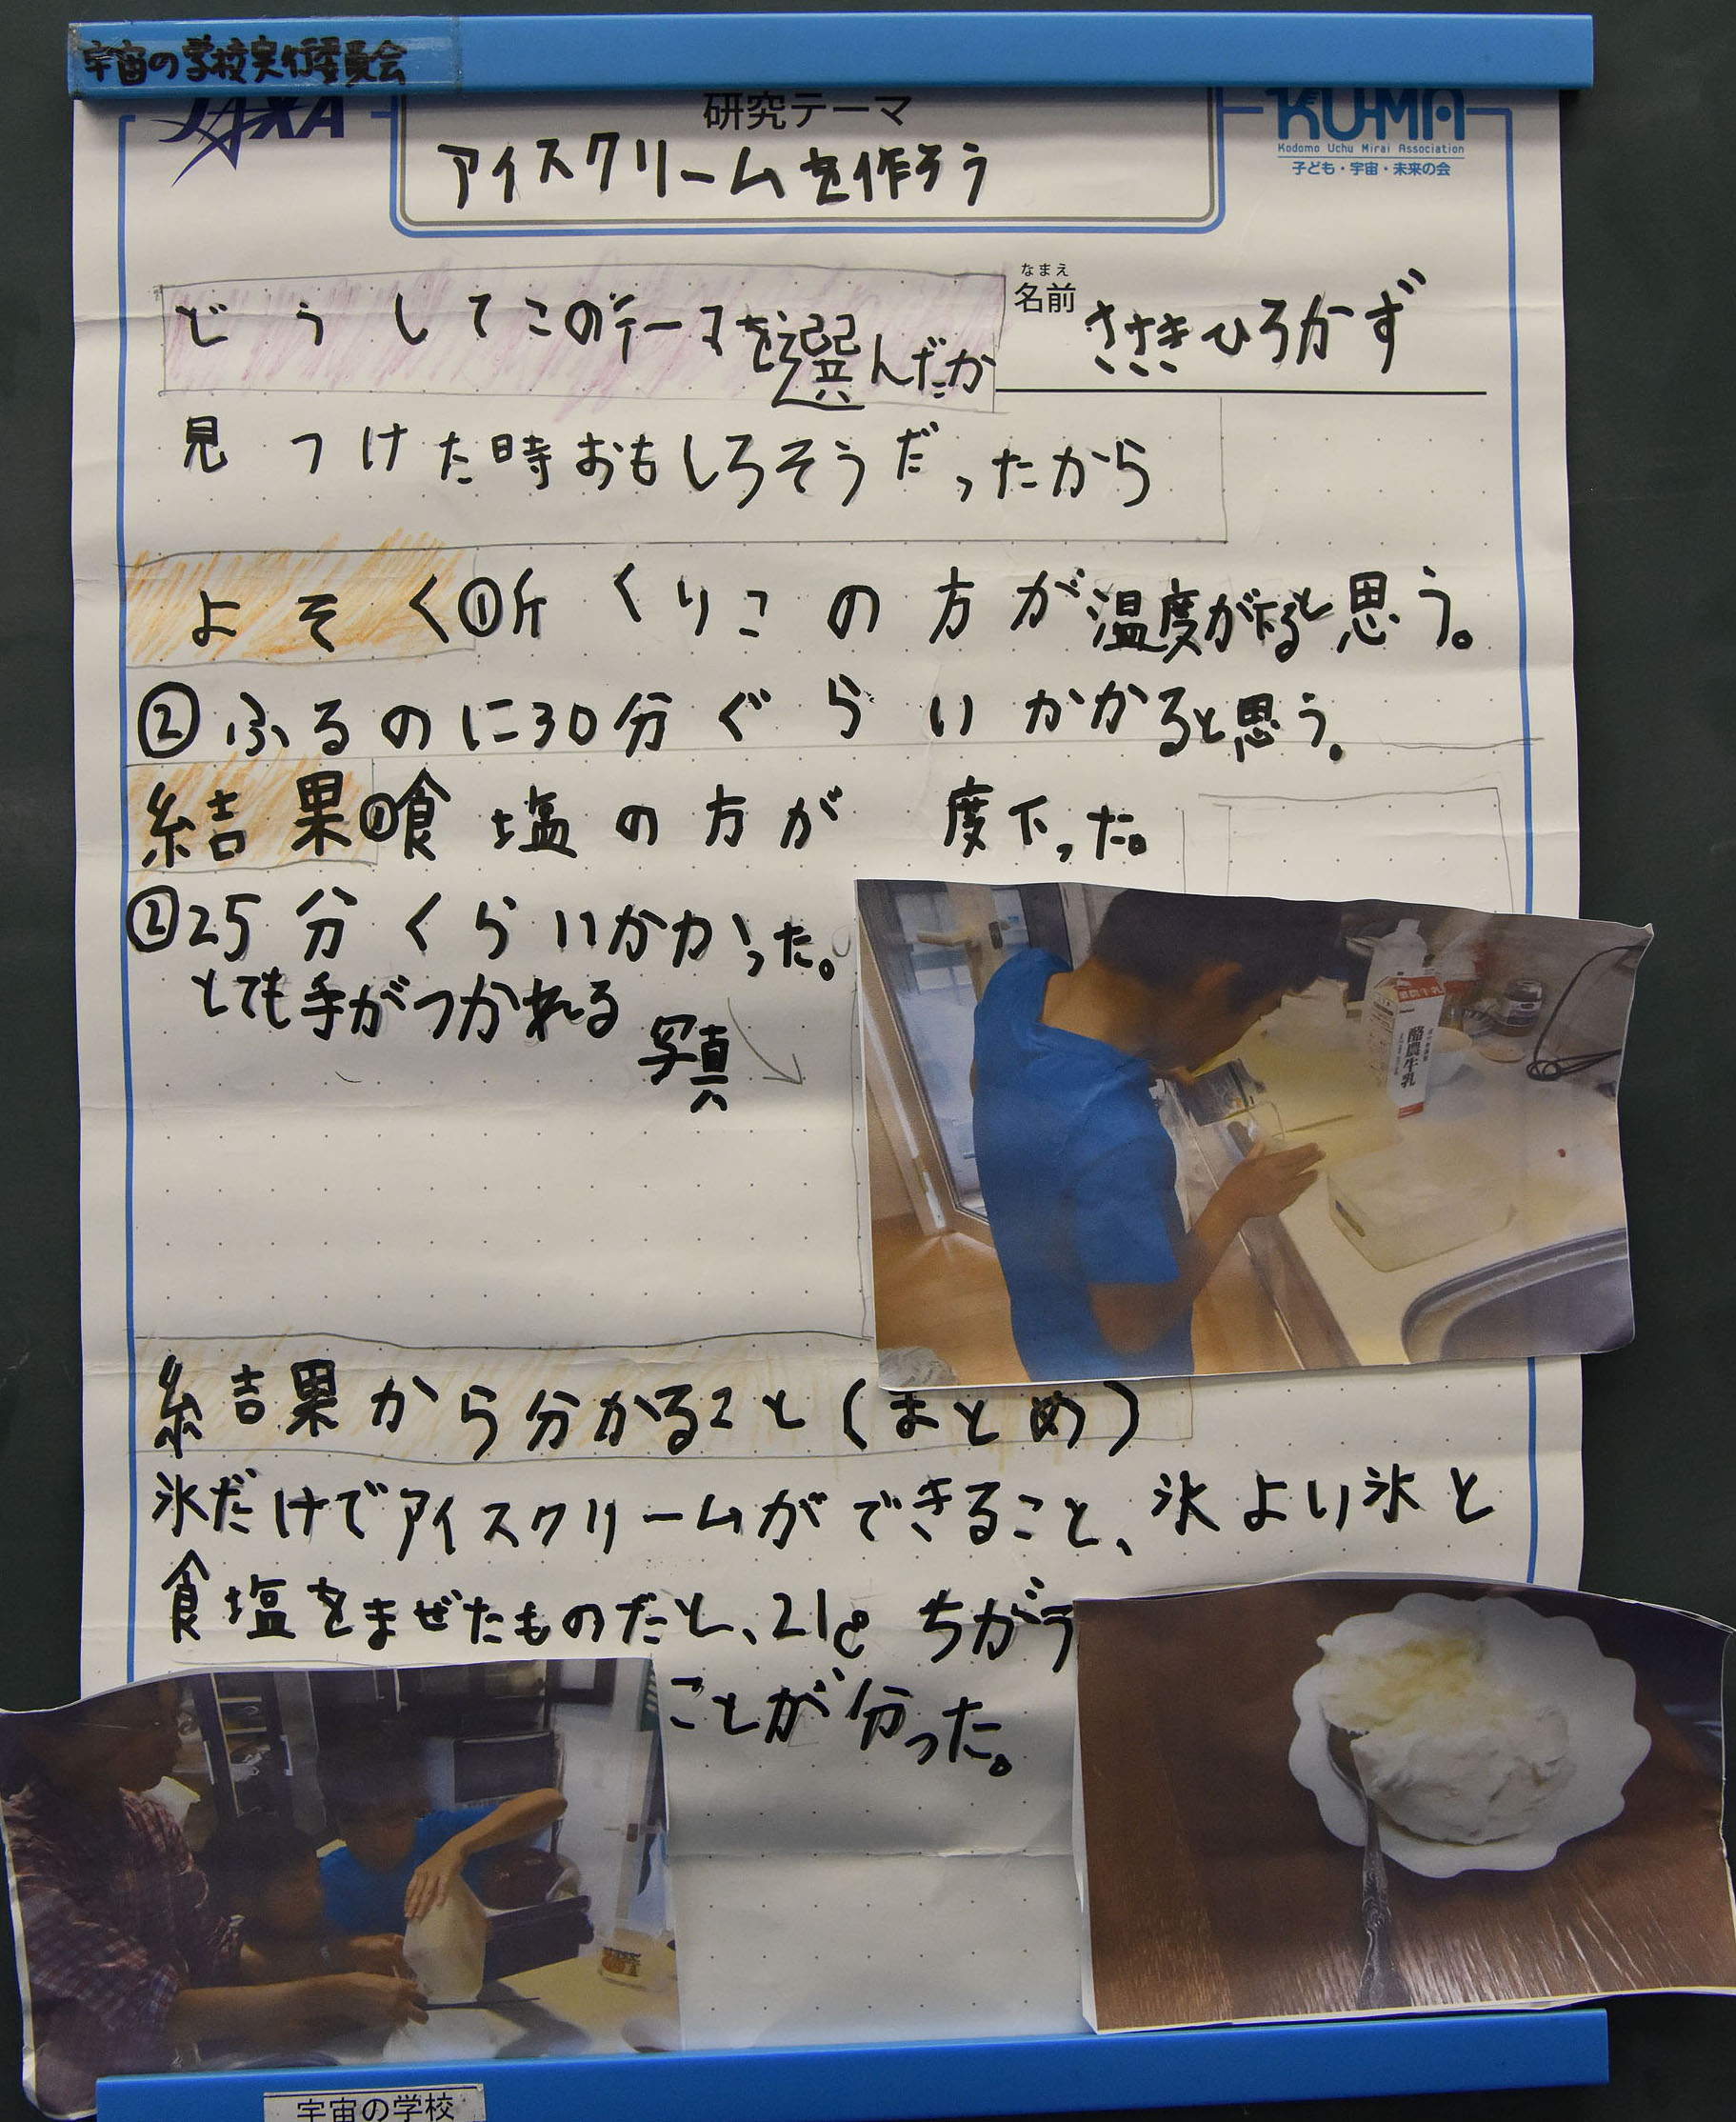 宇宙の学校実行委員会
JAXA
研究テーマ
アイスクリームを作ろう
KU-MA
Kodomo Uchu Mirai Association
子ども・宇宙・未来の会
どうしてこのテーマを選んだか
なまえ
名前 ささきひろかず
見つけた時おもしろそうだったから
よそく①斤くりこの方が温度が下ると思う。
②ふるのに30分ぐらいかかると思う。
結果①食塩の方が 度下った。
②25分くらいかかった。
とても手がつかれる
写真
酪農牛乳
結果から分かること(まとめ)
氷だけでアイスクリームができること、氷より氷と
食塩をまぜたものだと、21℃ちがう
ことが分った。
宇宙の学校